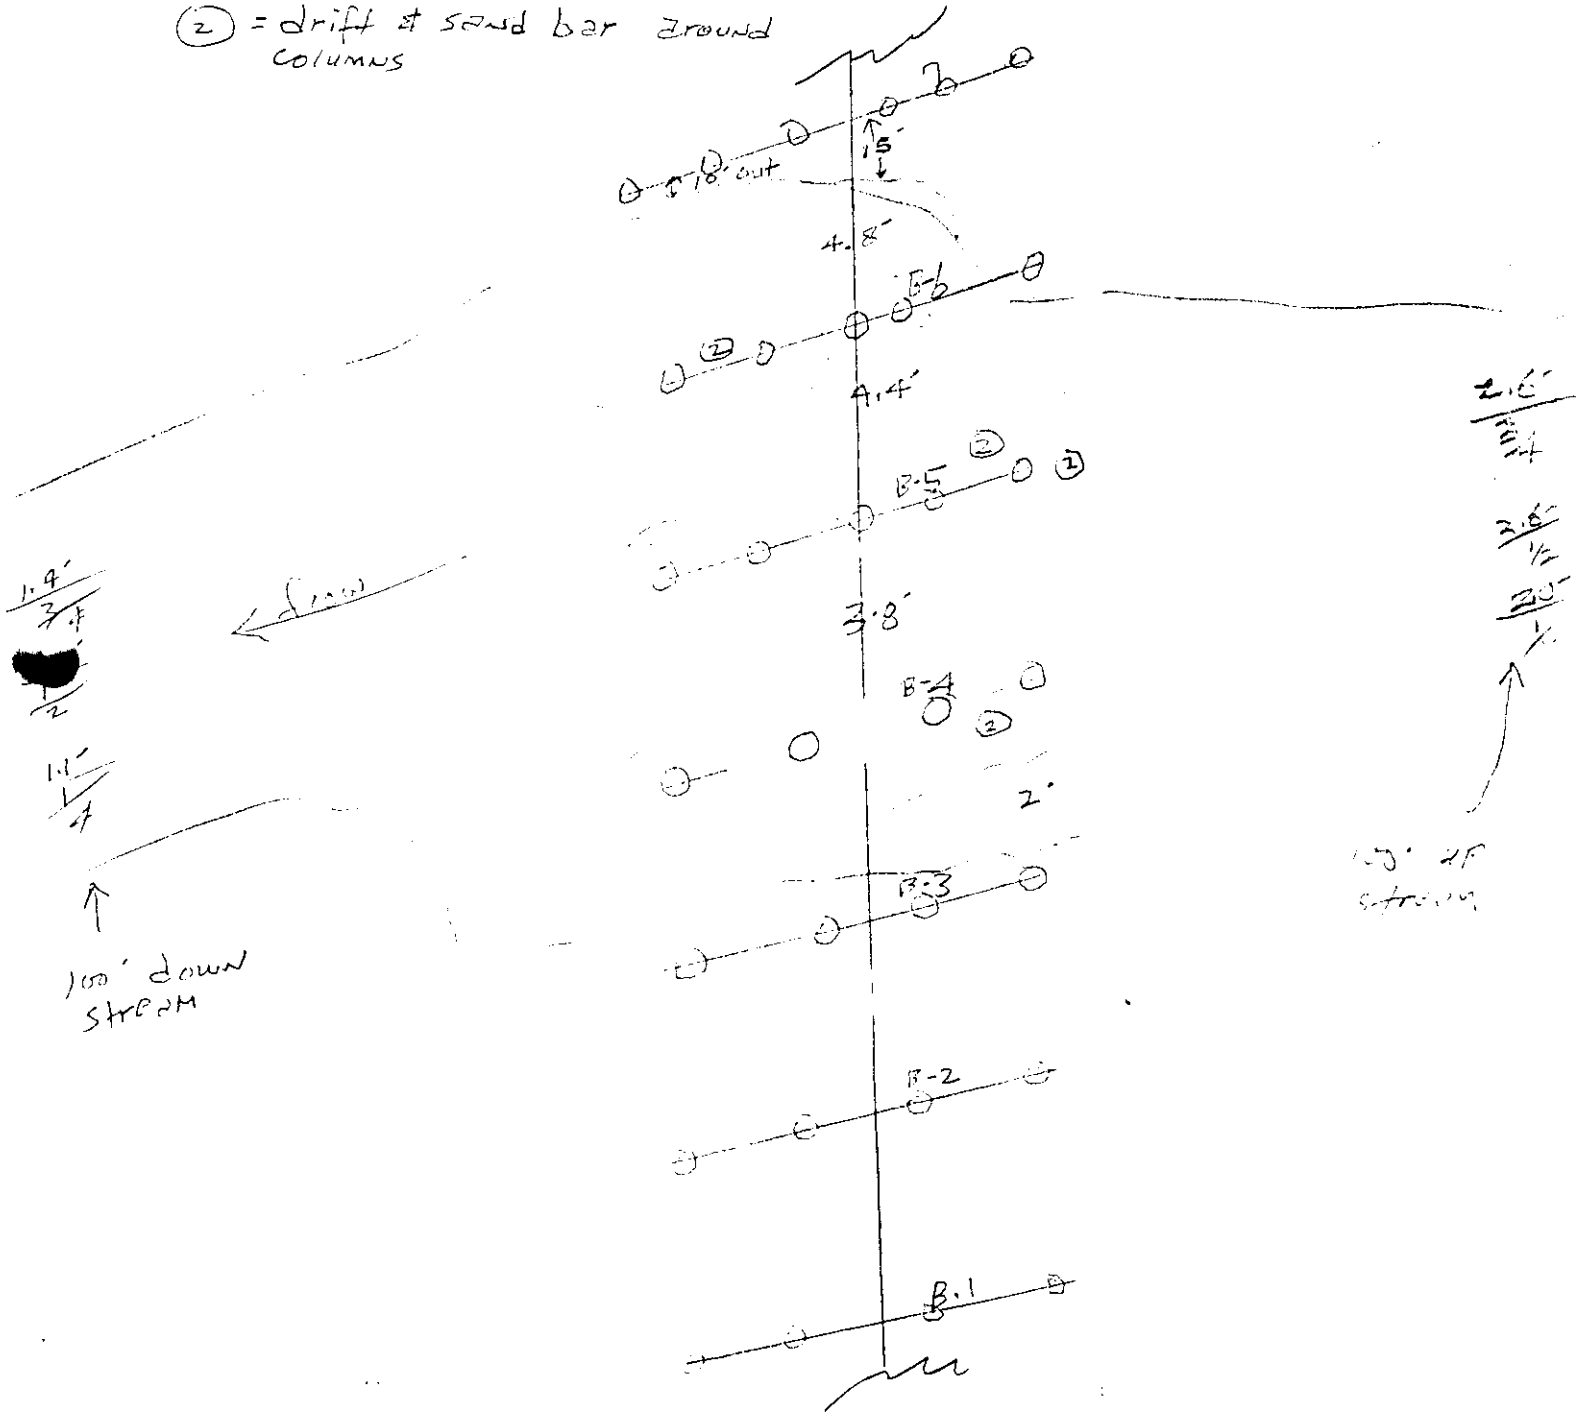 ② = drift & sand bar around
columns
7
15'
18' out
4.8'
B-6
②
4.4'
②
B-5
②
3.8'
B-4
②
2'
B-3
B-2
B-1
flow
1.4'
3/4
1/2
1.1'
1/4
100' down
stream
2.6'
3/4
2.6'
1/2
2.0'
up
stream